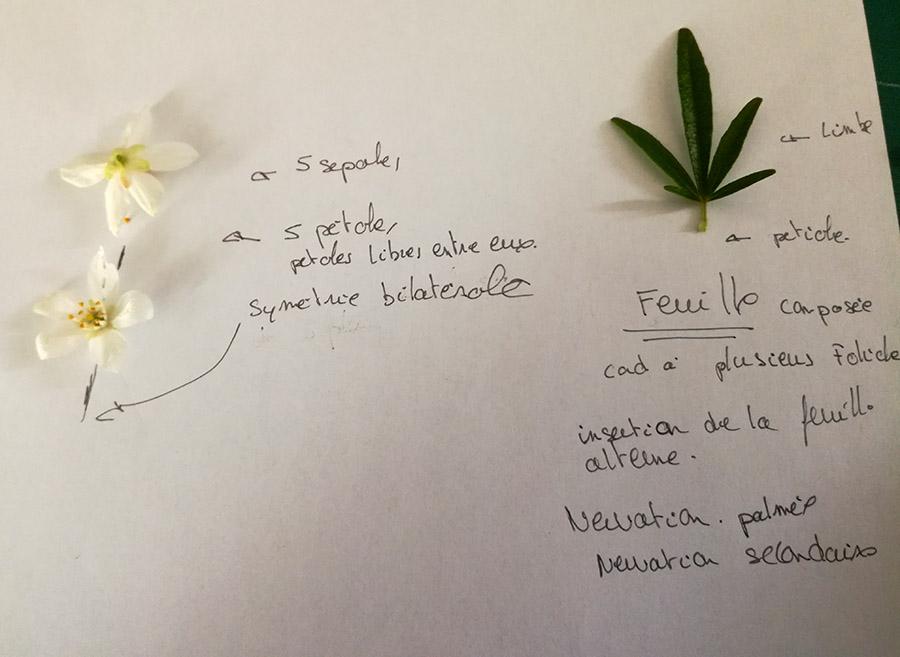 5 sepale,
5 pétale,
petales libres entre eux.
Symetrie bilatérale
Limbe
petiole.
Feuille composée
cad à plusieurs Foliole
insertion de la feuille
alterne.
Nervation. palmée
Nervation secondaire